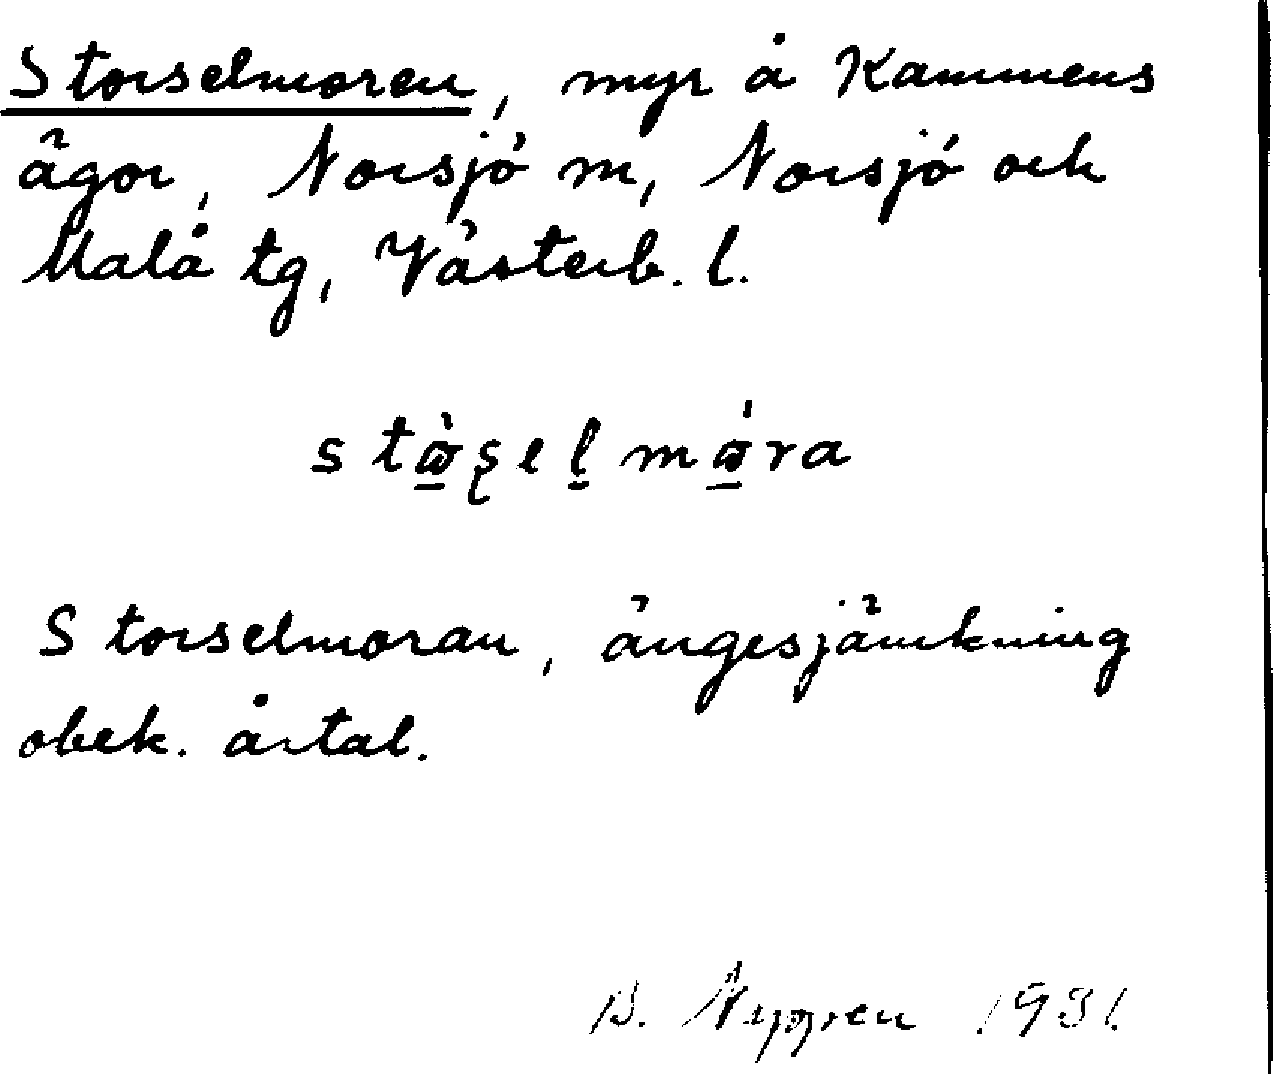 Storselmoren, myr å Kammens
ägor, Norsjö m, Norsjö och
Malå tg, Västerb. l.
Storselmoran, ängesjämkning
obek. årtal.
B. Nygren 1931.